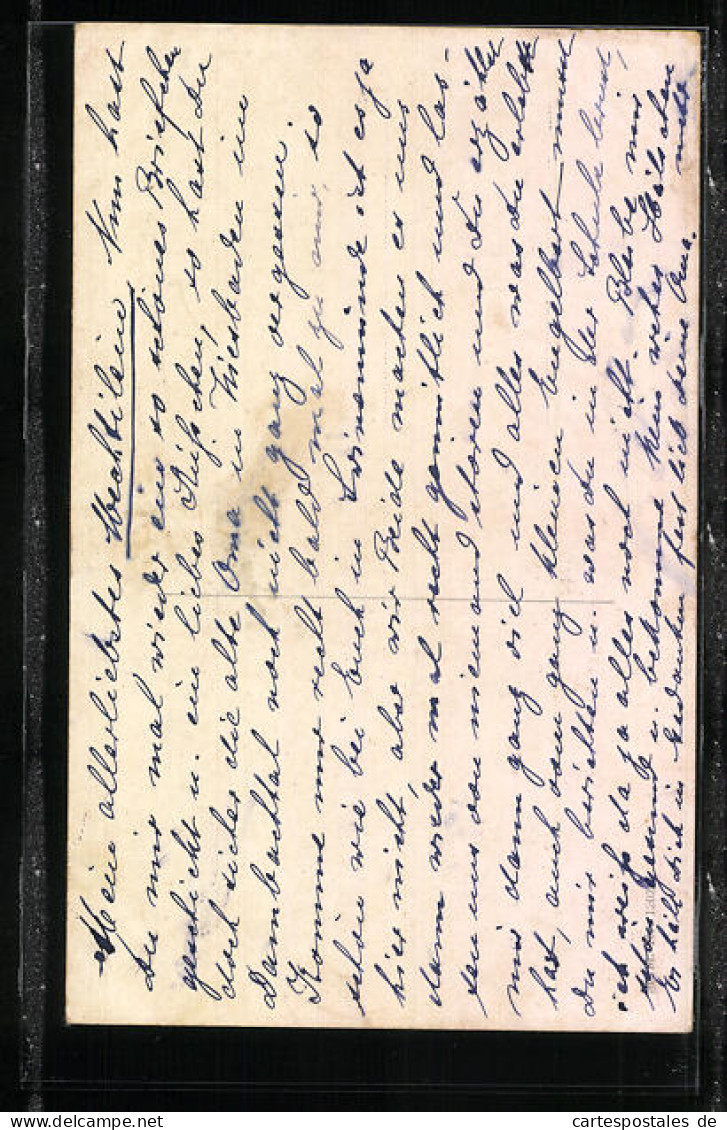 Mein allerliebstes Mechtilein! Nun hast
Du mir mal wieder ein so schönes Briefchen
geschickt u. ein liebes Küßchen, so hast Du
doch sicher die alte Oma in Wiesbaden im
Dambachtal noch nicht ganz vergessen.
Komme nur recht bald mal zu mir, so
schön wie bei Euch in Swinemünde ist es ja
hier nicht, aber wir Beide machen es uns
dann wieder mal recht gemütlich und las-
sen uns von niemand stören und Du erzählst
mir dann ganz viel und alles was Du erlebt
hast, auch vom ganz kleinen Engelbert mußt
Du mir berichten u. was Du in der Schule lernst,
ich weiß da ja alles noch nicht. Bleibe mir
schön gesund u. bekomme kein wehes Hälschen mehr.
Es hält Dich in Gedanken fest lieb Deine Oma.
cartespostales.de